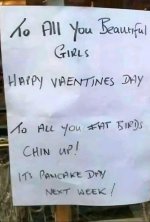 To All You Beautiful
Girls
Happy Vaentines Day
To All You #At Birds
Chin Up!
Its Pancake Day
Next Week!